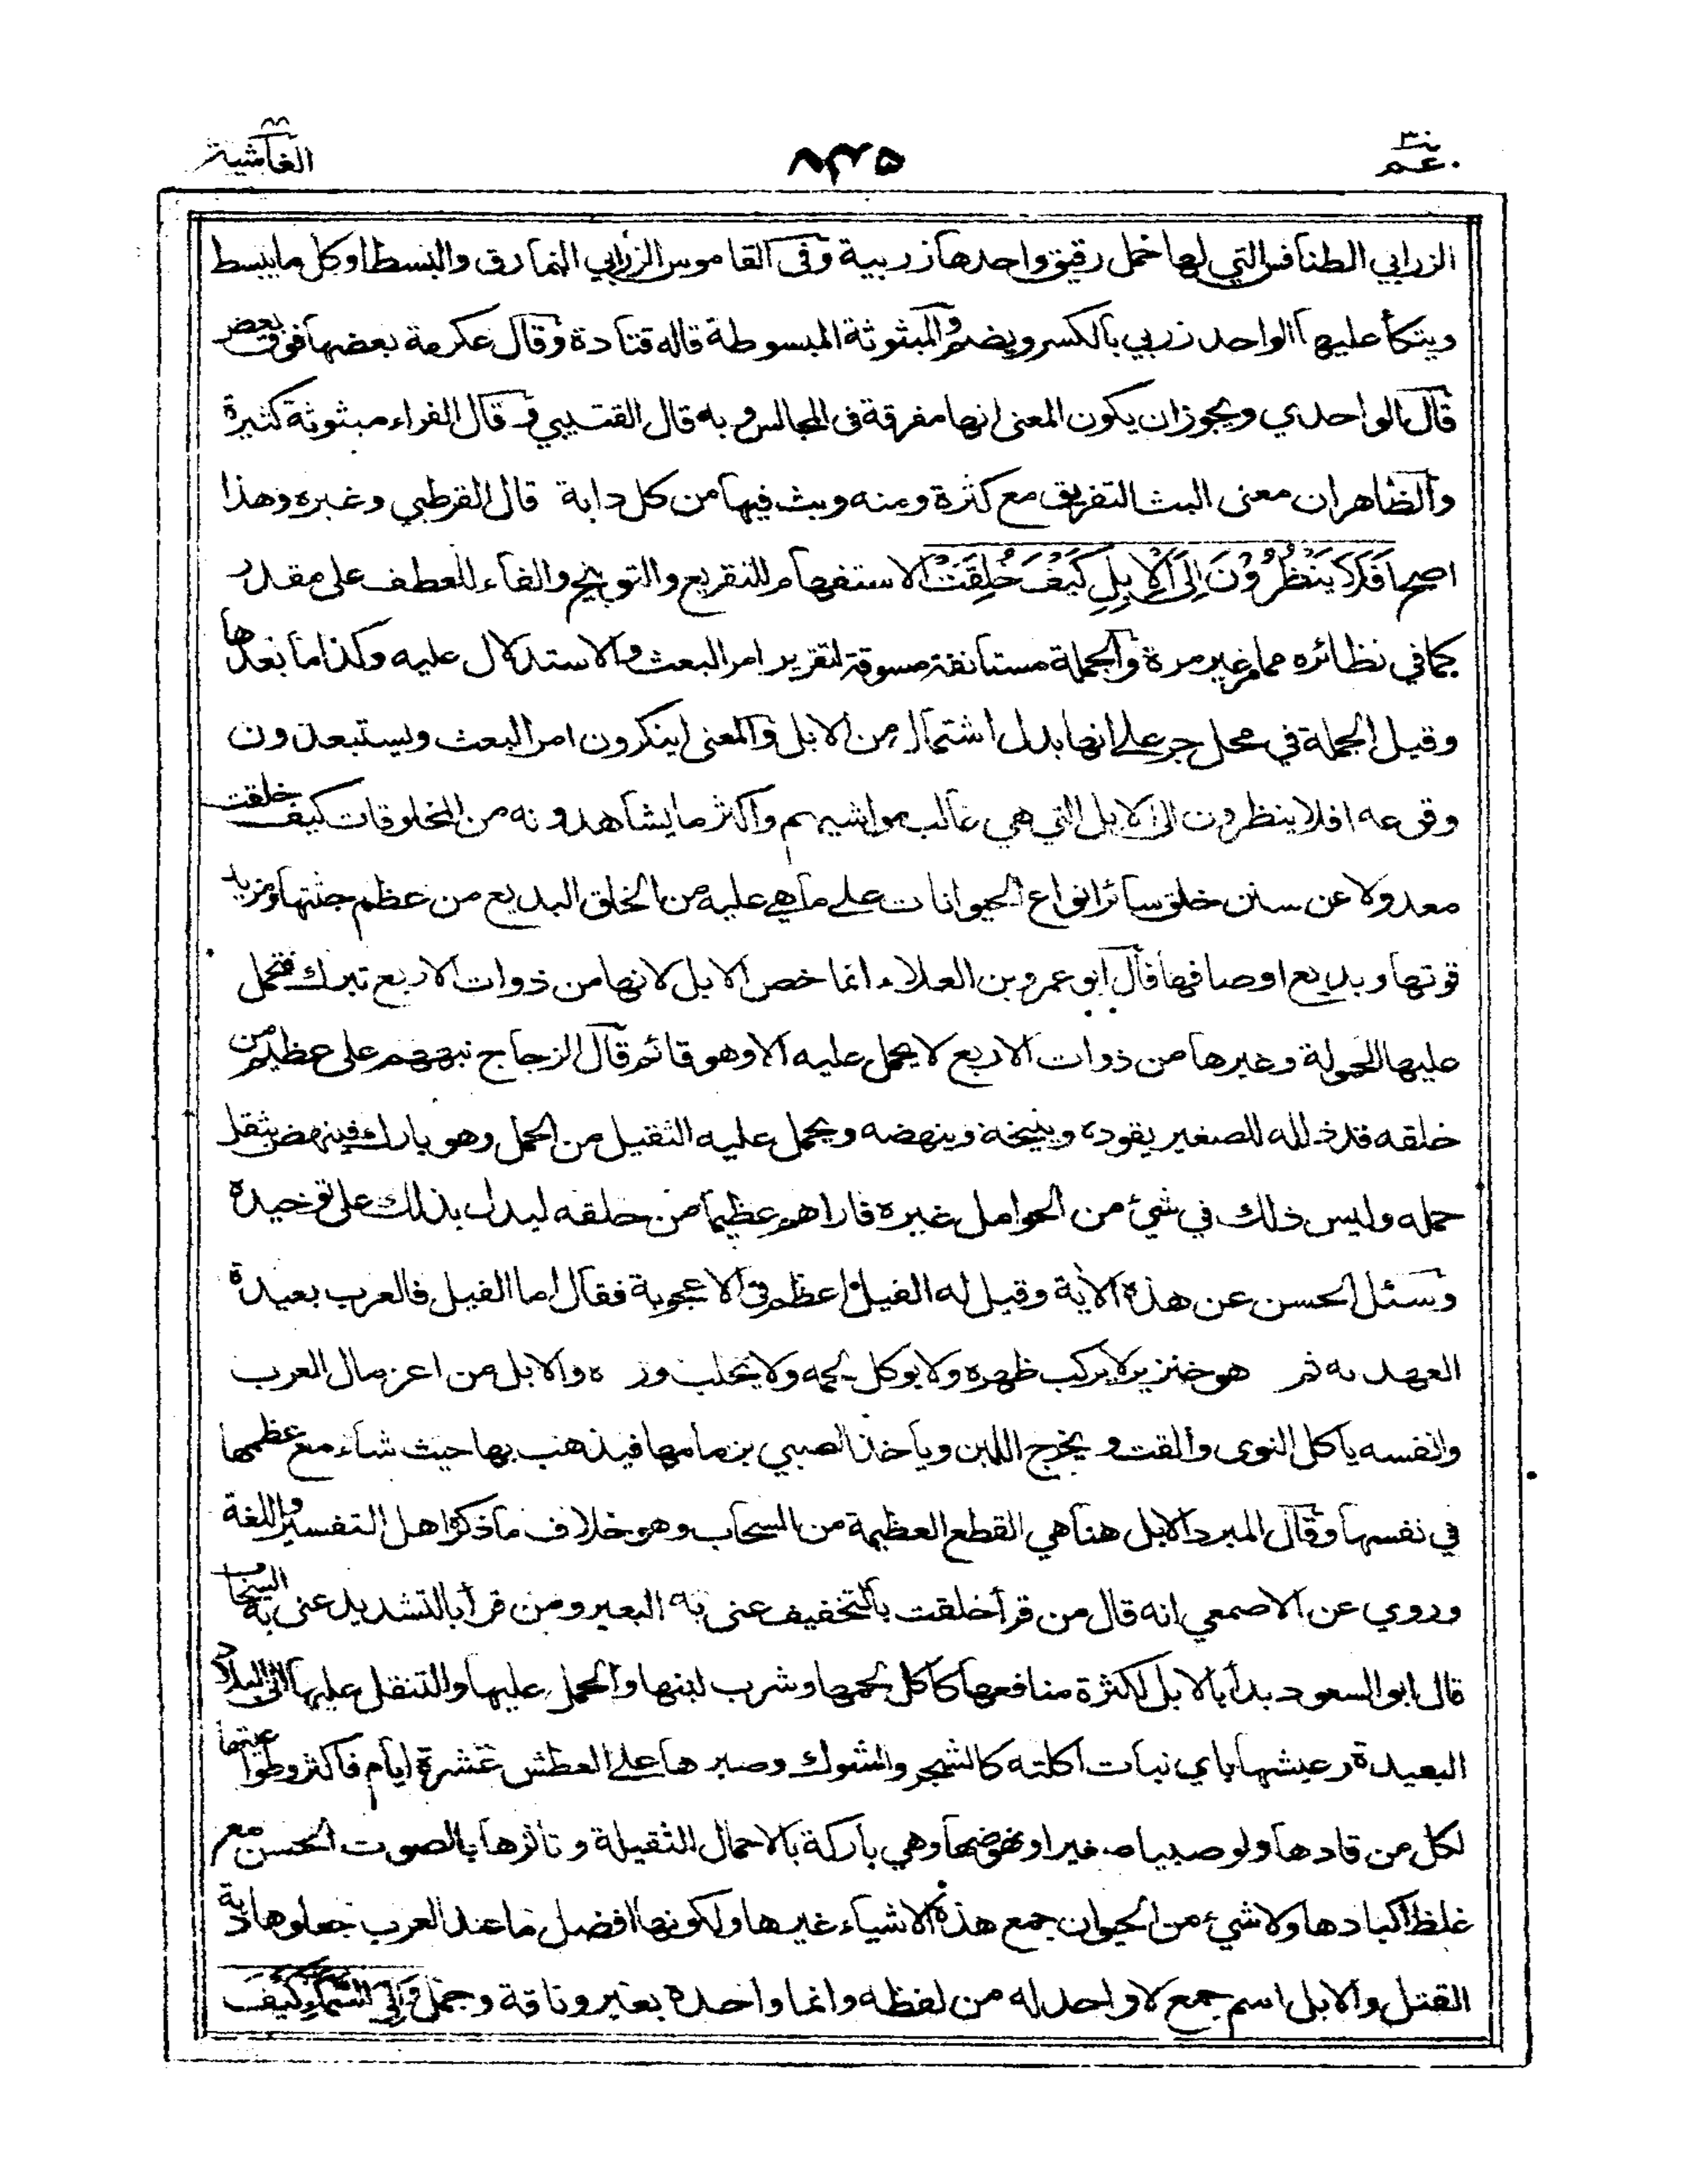 عم ٣٠
٥٣٨
الغاشية ٨٨
الزرابي الطنافس التي لها خمل رقيق واحدها زربية وفى القاموس الزرابي النمارق والبسط او كل ما يبسط
ويتكأ عليها الواحد زربي بالكسر ويضم والمبثوثة المبسوطة قاله قتادة وقال عكرمة بعضها فوق بعض
قال الواحدي ويجوز ان يكون المعنى انها مفرقة فى المجالس وبه قال القتيبي وقال الفراء مبثوثة كثيرة
والظاهر ان معنى البث التفريق مع كثرة ومنه وبث فيها من كل دابة قال القرطبي وغيره وهذا
اصح اَفَلَا يَنْظُرُوْنَ اِلَى الْاِبِلِ كَيْفَ خُلِقَتْ الاستفهام للتقريع والتوبيخ والفاء للعطف على مقدر
كما في نظائره مما مر غير مرة والجملة مستانفة مسوقة لتقرير امر البعث والاستدلال عليه وكذا ما بعدها
وقيل الجملة في محل جر على انها بدل اشتمال من الابل والمعنى اينكرون امر البعث ويستبعدون
وقوعه افلا ينظرون الى الابل التي هي غالب مواشيهم واكثر ما يشاهدونه من المخلوقات كيف خلقت
معدولا عن سنن خلق سائر انواع الحيوانات على ما هي عليه من الخلق البديع من عظم جثتها ومزيد
قوتها وبديع اوصافها قال ابو عمرو بن العلاء انما خص الابل لانها من ذوات الاربع تبرك فتحمل
عليها الحمولة وغيرها من ذوات الاربع لا يحمل عليه الا وهو قائم قال الزجاج نبههم على عظيم من
خلقه قد ذلله للصغير يقوده وينيخه وينهضه ويحمل عليه الثقيل من الحمل وهو بارك فينهض بثقل
حمله وليس ذلك في شيء من الحوامل غيره فاراهم عظيما من خلقه ليدل بذلك على توحيده
وسئل الحسن عن هذه الآية وقيل له الفيل اعظم في الاعجوبة فقال اما الفيل فالعرب بعيدة
العهد به ثم هو خنزير لا يركب ظهره ولا يوكل لحمه ولا يحلب دره والابل من اعز مال العرب
وانفسه ياكل النوى والقت ويخرج اللبن وياخذ الصبي بزمامها فيذهب بها حيث شاء مع عظمها
في نفسها وقال المبرد الابل هنا هي القطع العظيمة من السحاب وهو خلاف ما ذكره اهل التفسير واللغة
وروي عن الاصمعي انه قال من قرأ خلقت بالتخفيف عنى به البعير ومن قرأ بالتشديد عنى به السحاب
قال ابو السعود بدأ بالابل لكثرة منافعها كاكل لحمها وشرب لبنها والحمل عليها والتنقل عليها الى البلاد
البعيدة وعيشها باي نبات اكلته كالشجر والشوك وصبرها على العطش عشرة ايام فاكثر وطواعيتها
لكل من قادها ولو صبيا صغيرا ونهوضها وهي باركة بالاحمال الثقيلة وتاثرها بالصوت الحسن مع
غلظ اكبادها ولا شيء من الحيوان جمع هذه الاشياء غيرها ولكونها افضل ما عند العرب جعلوها دية
القتل والابل اسم جمع لا واحد له من لفظه وانما واحده بعير وناقة وجمل وَاِلَى السَّمَاءِ كَيْفَ